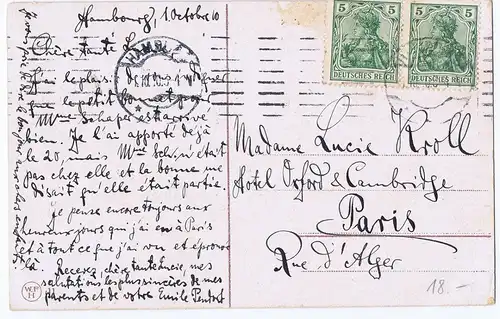 Hambourg 1 Octobre 10
Chère tante L.
J'ai le plaisir de vous
que le petit bonnet pour
Mme Schape est arrivé
bien. Je l'ai apporté déjà
le 20, mais Mme Sch. n'était
pas chez elle et la bonne me
disait qu'elle était partie.
Je pense encore toujours aux
heureux jours que j'ai eu à Paris
et à tout ce que j'ai vu et éprouvé
là. Recevez, chère tante Lucie, mes
salutations les plus sincères de mes
parents et de votre Emile
5 5
5 5
DEUTSCHES REICH DEUTSCHES REICH
Madame Lucie Kroll
Hotel Oxford & Cambridge
Paris
Rue d'Alger
18.-